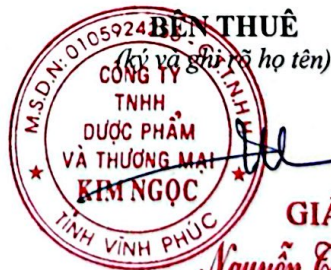 BÊN THUÊ
(ký và ghi rõ họ tên)
M.S.D.N: 0105924
T.T.N.H.H
CÔNG TY
TNHH
DƯỢC PHẨM
VÀ THƯƠNG MẠI
KIM NGỌC
TỈNH VĨNH PHÚC
GIÁ
Nguyễn